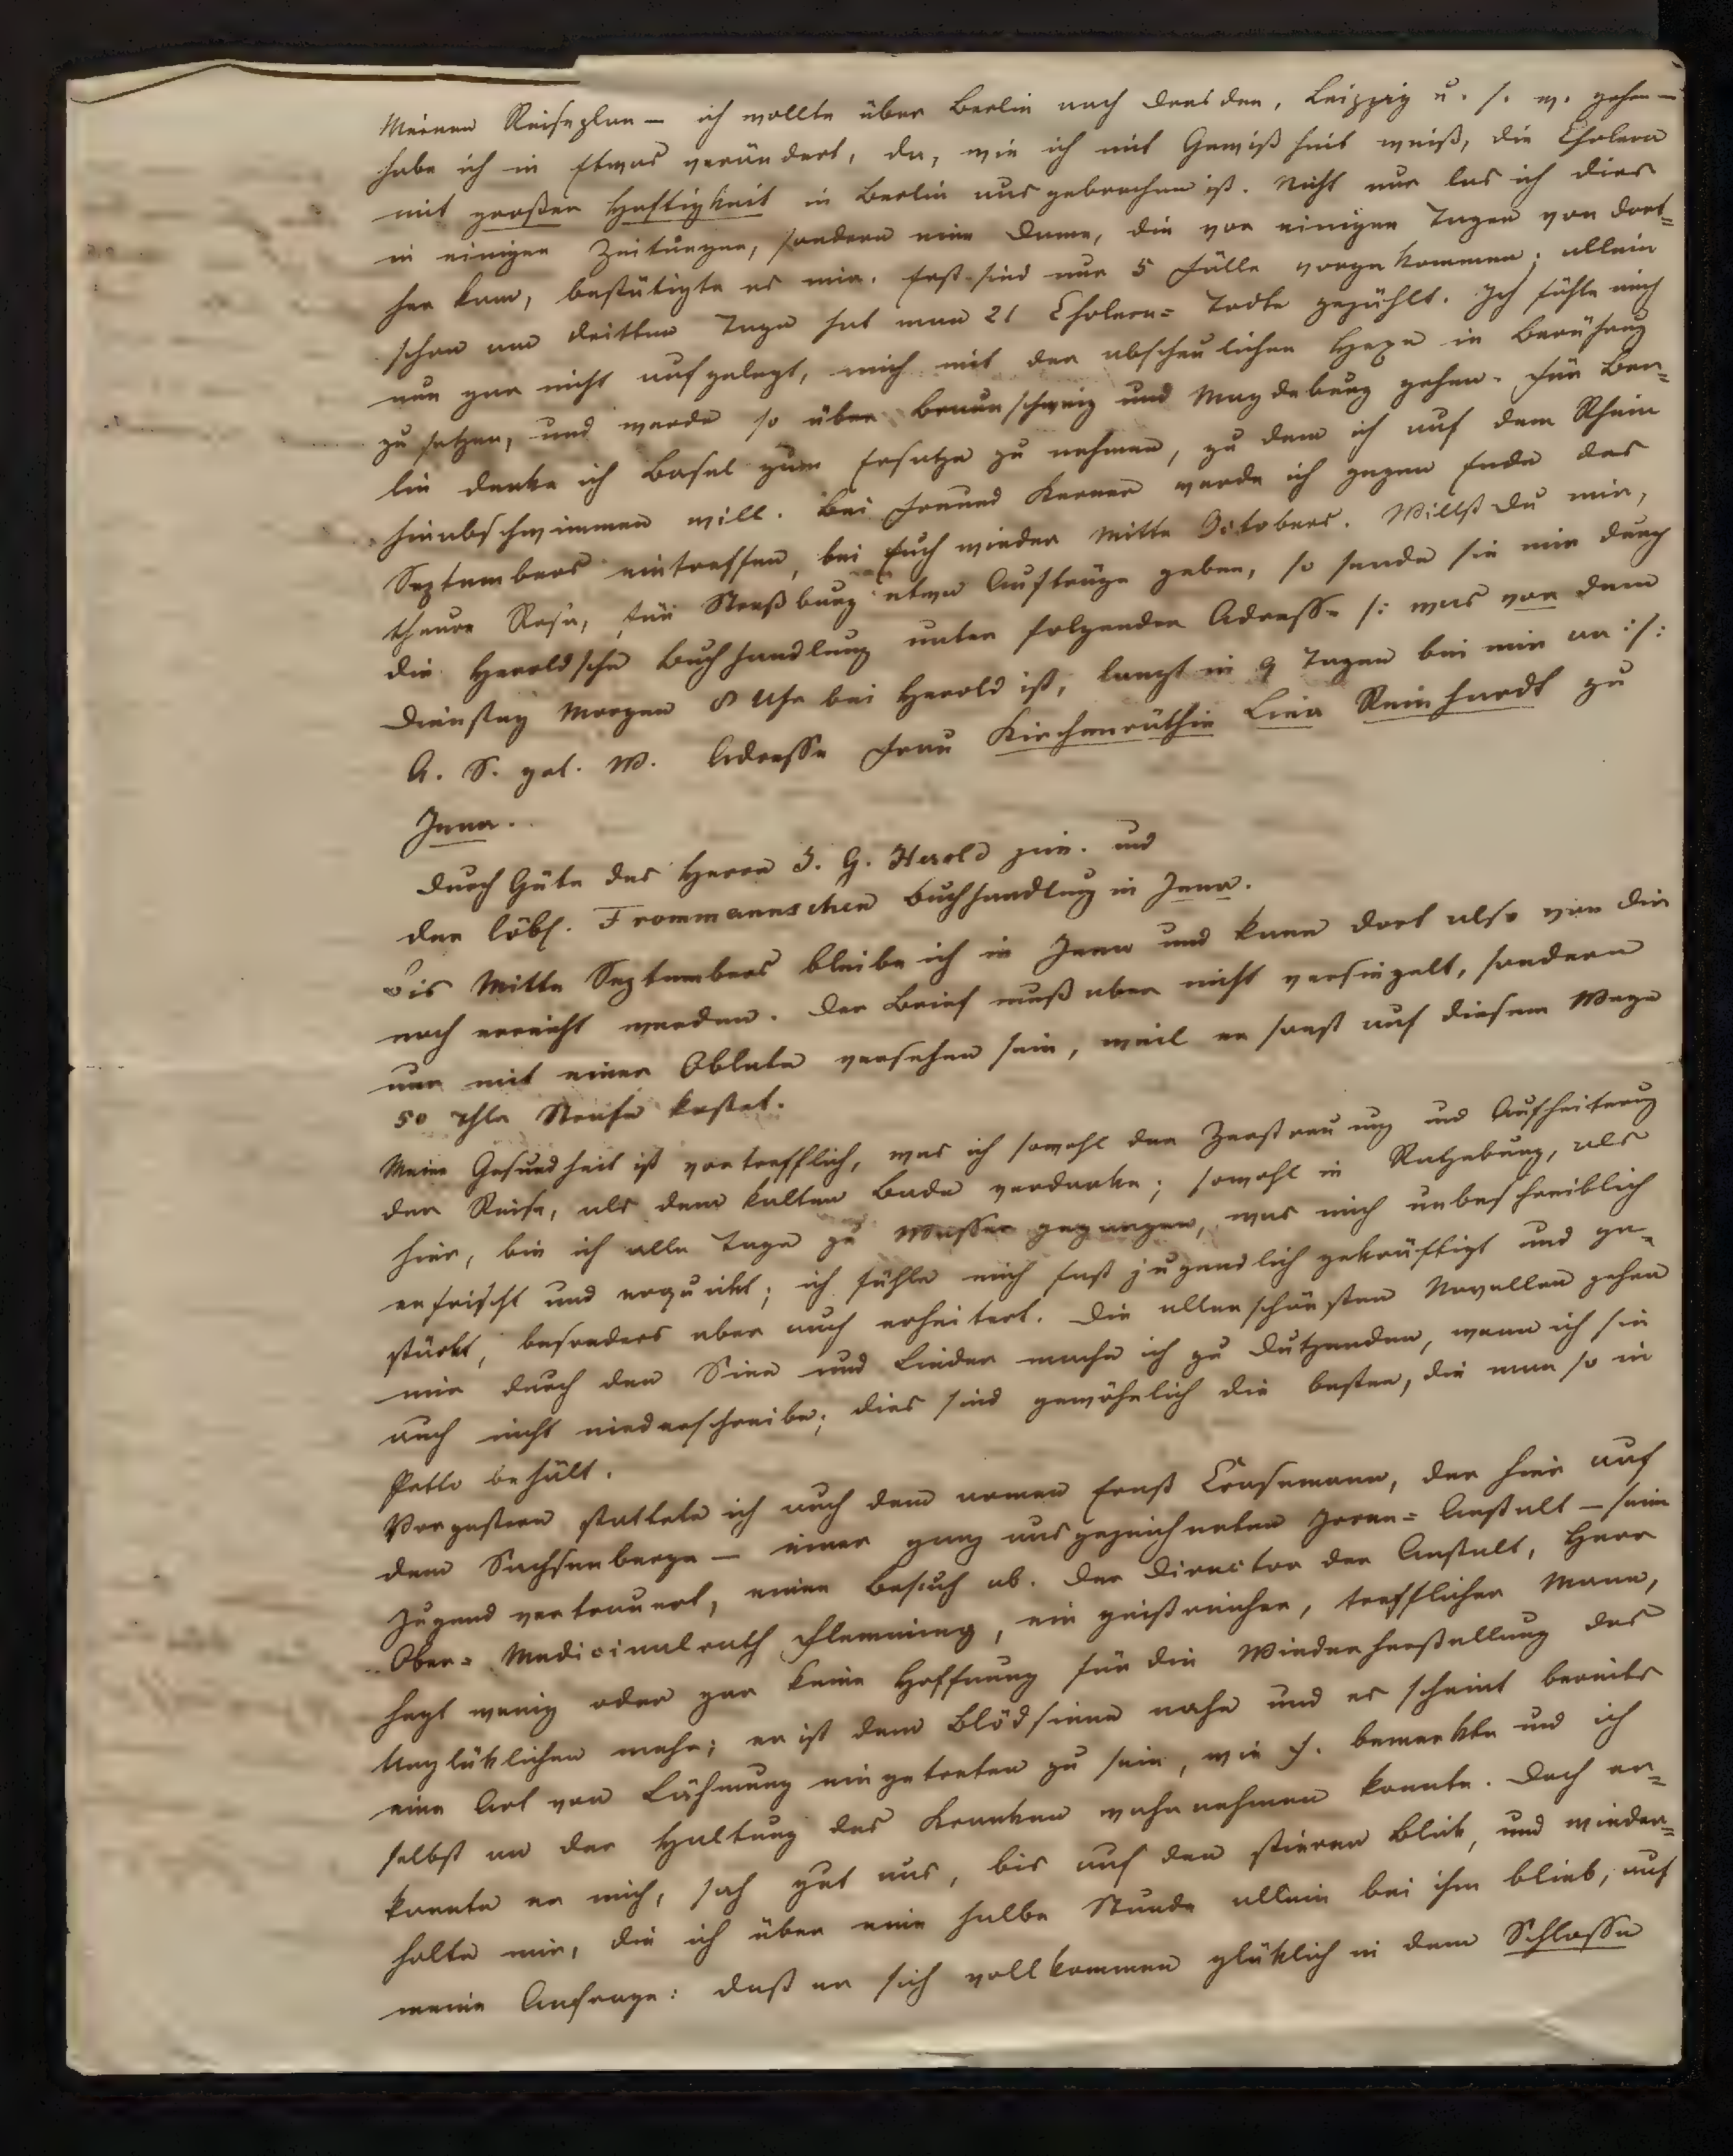 Meinen Reiseplan — ich wollte über Berlin nach Dresden, Leipzig u. s. w. gehen —
habe ich in Etwas verändert, da, wie ich mit Gewißheit weiß, die Cholera
mit großer Heftigkeit in Berlin ausgebrochen ist. Nicht nur las ich dies
in einigen Zeitungen, sondern eine Dame, die vor einigen Tagen von dort=
her kam, bestätigte es mir. Erst sind nur 5 Fälle vorgekommen; allein
schon am dritten Tage hat man 21 Cholera= Todte gezählt. Ich fühle mich
nun gar nicht aufgelegt, mich mit der abscheulichen Hexe in Berührung
zu setzen, und werde so über Braunschweig und Magdeburg gehen. Für Ber=
lin denke ich Basel zum Ersatze zu nehmen, zu dem ich auf dem Rhein
hinabschwimmen will. Bei Freund Kerner werde ich gegen Ende des
Septembers eintreffen, bei Euch wieder Mitte Octobers. Willst Du mir,
theure Rosa, für Straßburg etwa Aufträge geben, so sende sie mir durch
die Heroldsche Buchhandlung unter folgender Adresse /: was vor dem
Dienstag Morgen 8 Uhr bei Herold ist, langt in 9 Tagen bei mir an :/:
A. S. gel. W. Adresse Frau Kirchenräthin Lina Reinhardt zu
Jena.
Durch Güte des Herrn J. G. Herold jun. und
der löbl. Frommannschen Buchhandlung in Jena.
Bis Mitte Septembers bleibe ich in Jena und kann dort also von Dir
noch erreicht werden. Der Brief muß aber nicht versiegelt, sondern
nur mit einer Oblate versehen sein, weil er sonst auf diesem Wege
50 Thlr Strafe kostet.
Meine Gesundheit ist vortrefflich, was ich sowohl der Zerstreuung und Aufheiterung
der Reise, als dem kalten Bade verdanke; sowohl in Ratzeburg, als
hier, bin ich alle Tage zu Wasser gegangen, was mich unbeschreiblich
erfrischt und erquickt; ich fühle mich fast jugendlich gekräftigt und ge=
stärkt, besonders aber auch erheitert. Die allerschönsten Novellen gehen
mir durch den Sinn und Lieder mache ich zu Dutzenden, wenn ich sie
auch nicht niederschreibe; dies sind gewöhnlich die besten, die man so in
Petto behält.
Vorgestern stattete ich auch dem armen Ernst Crusemann, der hier auf
dem Sachsenberge — einer ganz ausgezeichneten Irren= Anstalt — seine
Jugend vertrauert, einen Besuch ab. Der Director der Anstalt, Herr
Ober= Medicinalrath Flemming, ein geistreicher, trefflicher Mann,
hegt wenig oder gar keine Hoffnung für die Wiederherstellung des
Unglüklichen mehr; er ist dem Blödsinne nahe und es scheint bereits
eine Art von Lähmung eingetreten zu sein, wie F. bemerkte und ich
selbst an der Haltung des Kranken wahrnehmen konnte. Doch er=
kannte er mich, sah gut aus, bis auf den stieren Blick, und wieder=
holte mir, die ich über eine halbe Stunde allein bei ihm blieb, auf
meine Anfrage: daß er sich vollkommen glüklich in dem Schlosse